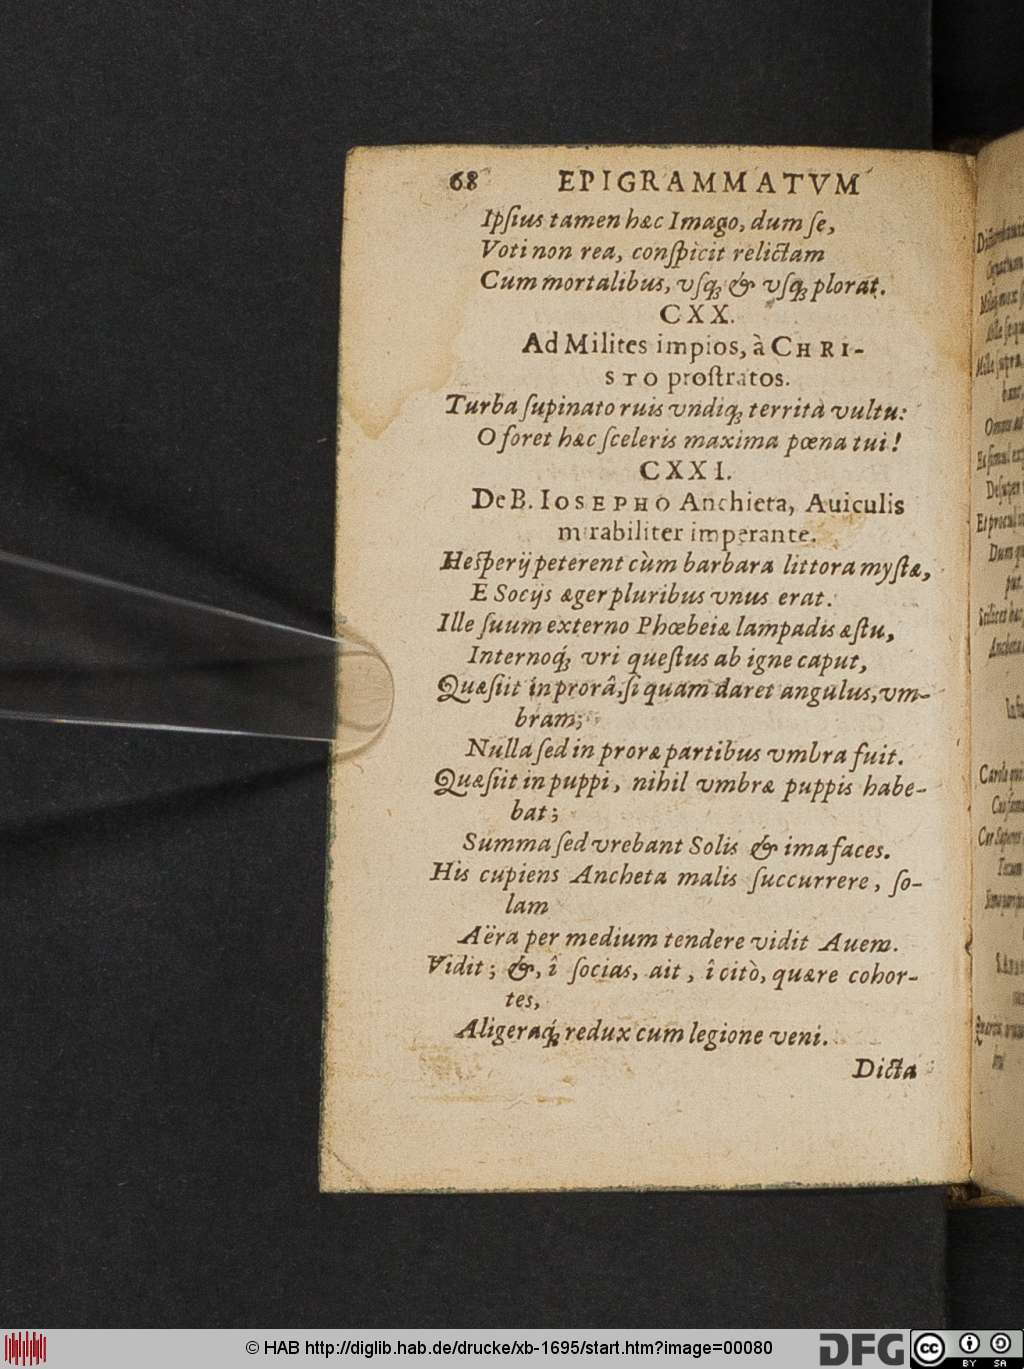 68 EPIGRAMMATVM
Ipſius tamen hæc Imago, dum ſe,
Voti non rea, conſpicit relictam
Cum mortalibus, vſq́; & vſq́; plorat.
CXX.
Ad Milites impios, à CHRI-
STO proſtratos.
Turba ſupinato ruis vndiq́; territa vultu:
O foret hæc ſceleris maxima pœna tui!
CXXI.
De B. IOSEPHO Anchieta, Auiculis
mirabiliter imperante.
Heſperij peterent cùm barbara littora myſtæ,
E Socijs æger pluribus vnus erat.
Ille ſuum externo Phœbeiæ lampadis æſtu,
Internoq́; vri queſtus ab igne caput,
Quæſiit in prorâ, ſi quam daret angulus, vm-
bram;
Nulla ſed in proræ partibus vmbra fuit.
Quæſiit in puppi, nihil vmbræ puppis habe-
bat;
Summa ſed vrebant Solis & ima faces.
His cupiens Ancheta malis ſuccurrere, ſo-
lam
Aëra per medium tendere vidit Auem.
Vidit; &, î ſocias, ait, î citò, quære cohor-
tes,
Aligeraq́; redux cum legione veni.
Dicta
© HAB http://diglib.hab.de/drucke/xb-1695/start.htm?image=00080
DFG
cc BY SA